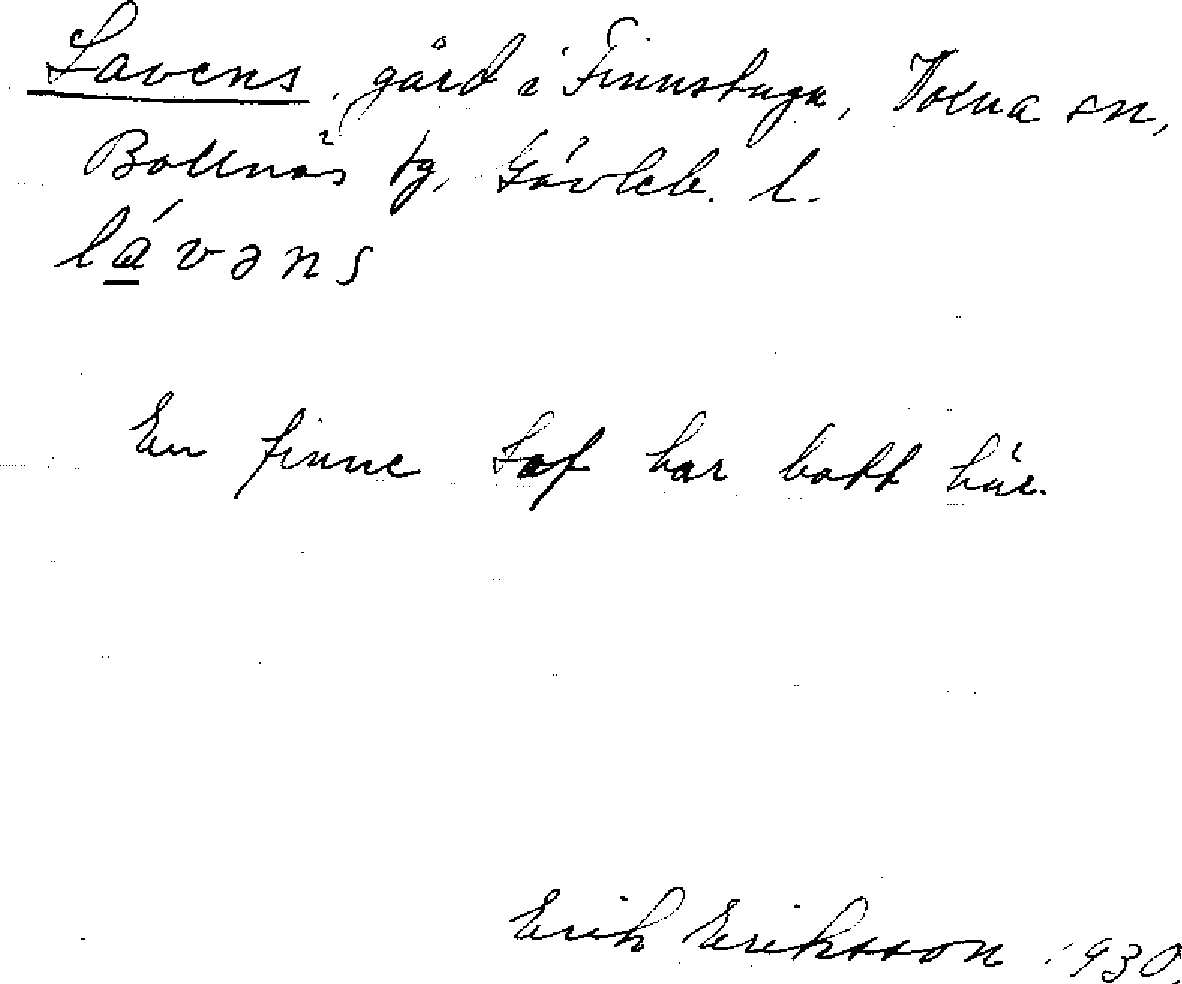 Lavens, gård i Finnstuga, Voxna sn,
Bollnäs tg, Gävleb. l.
lávəns
En finne Laf har bott här.
Erik Eriksson 1930.